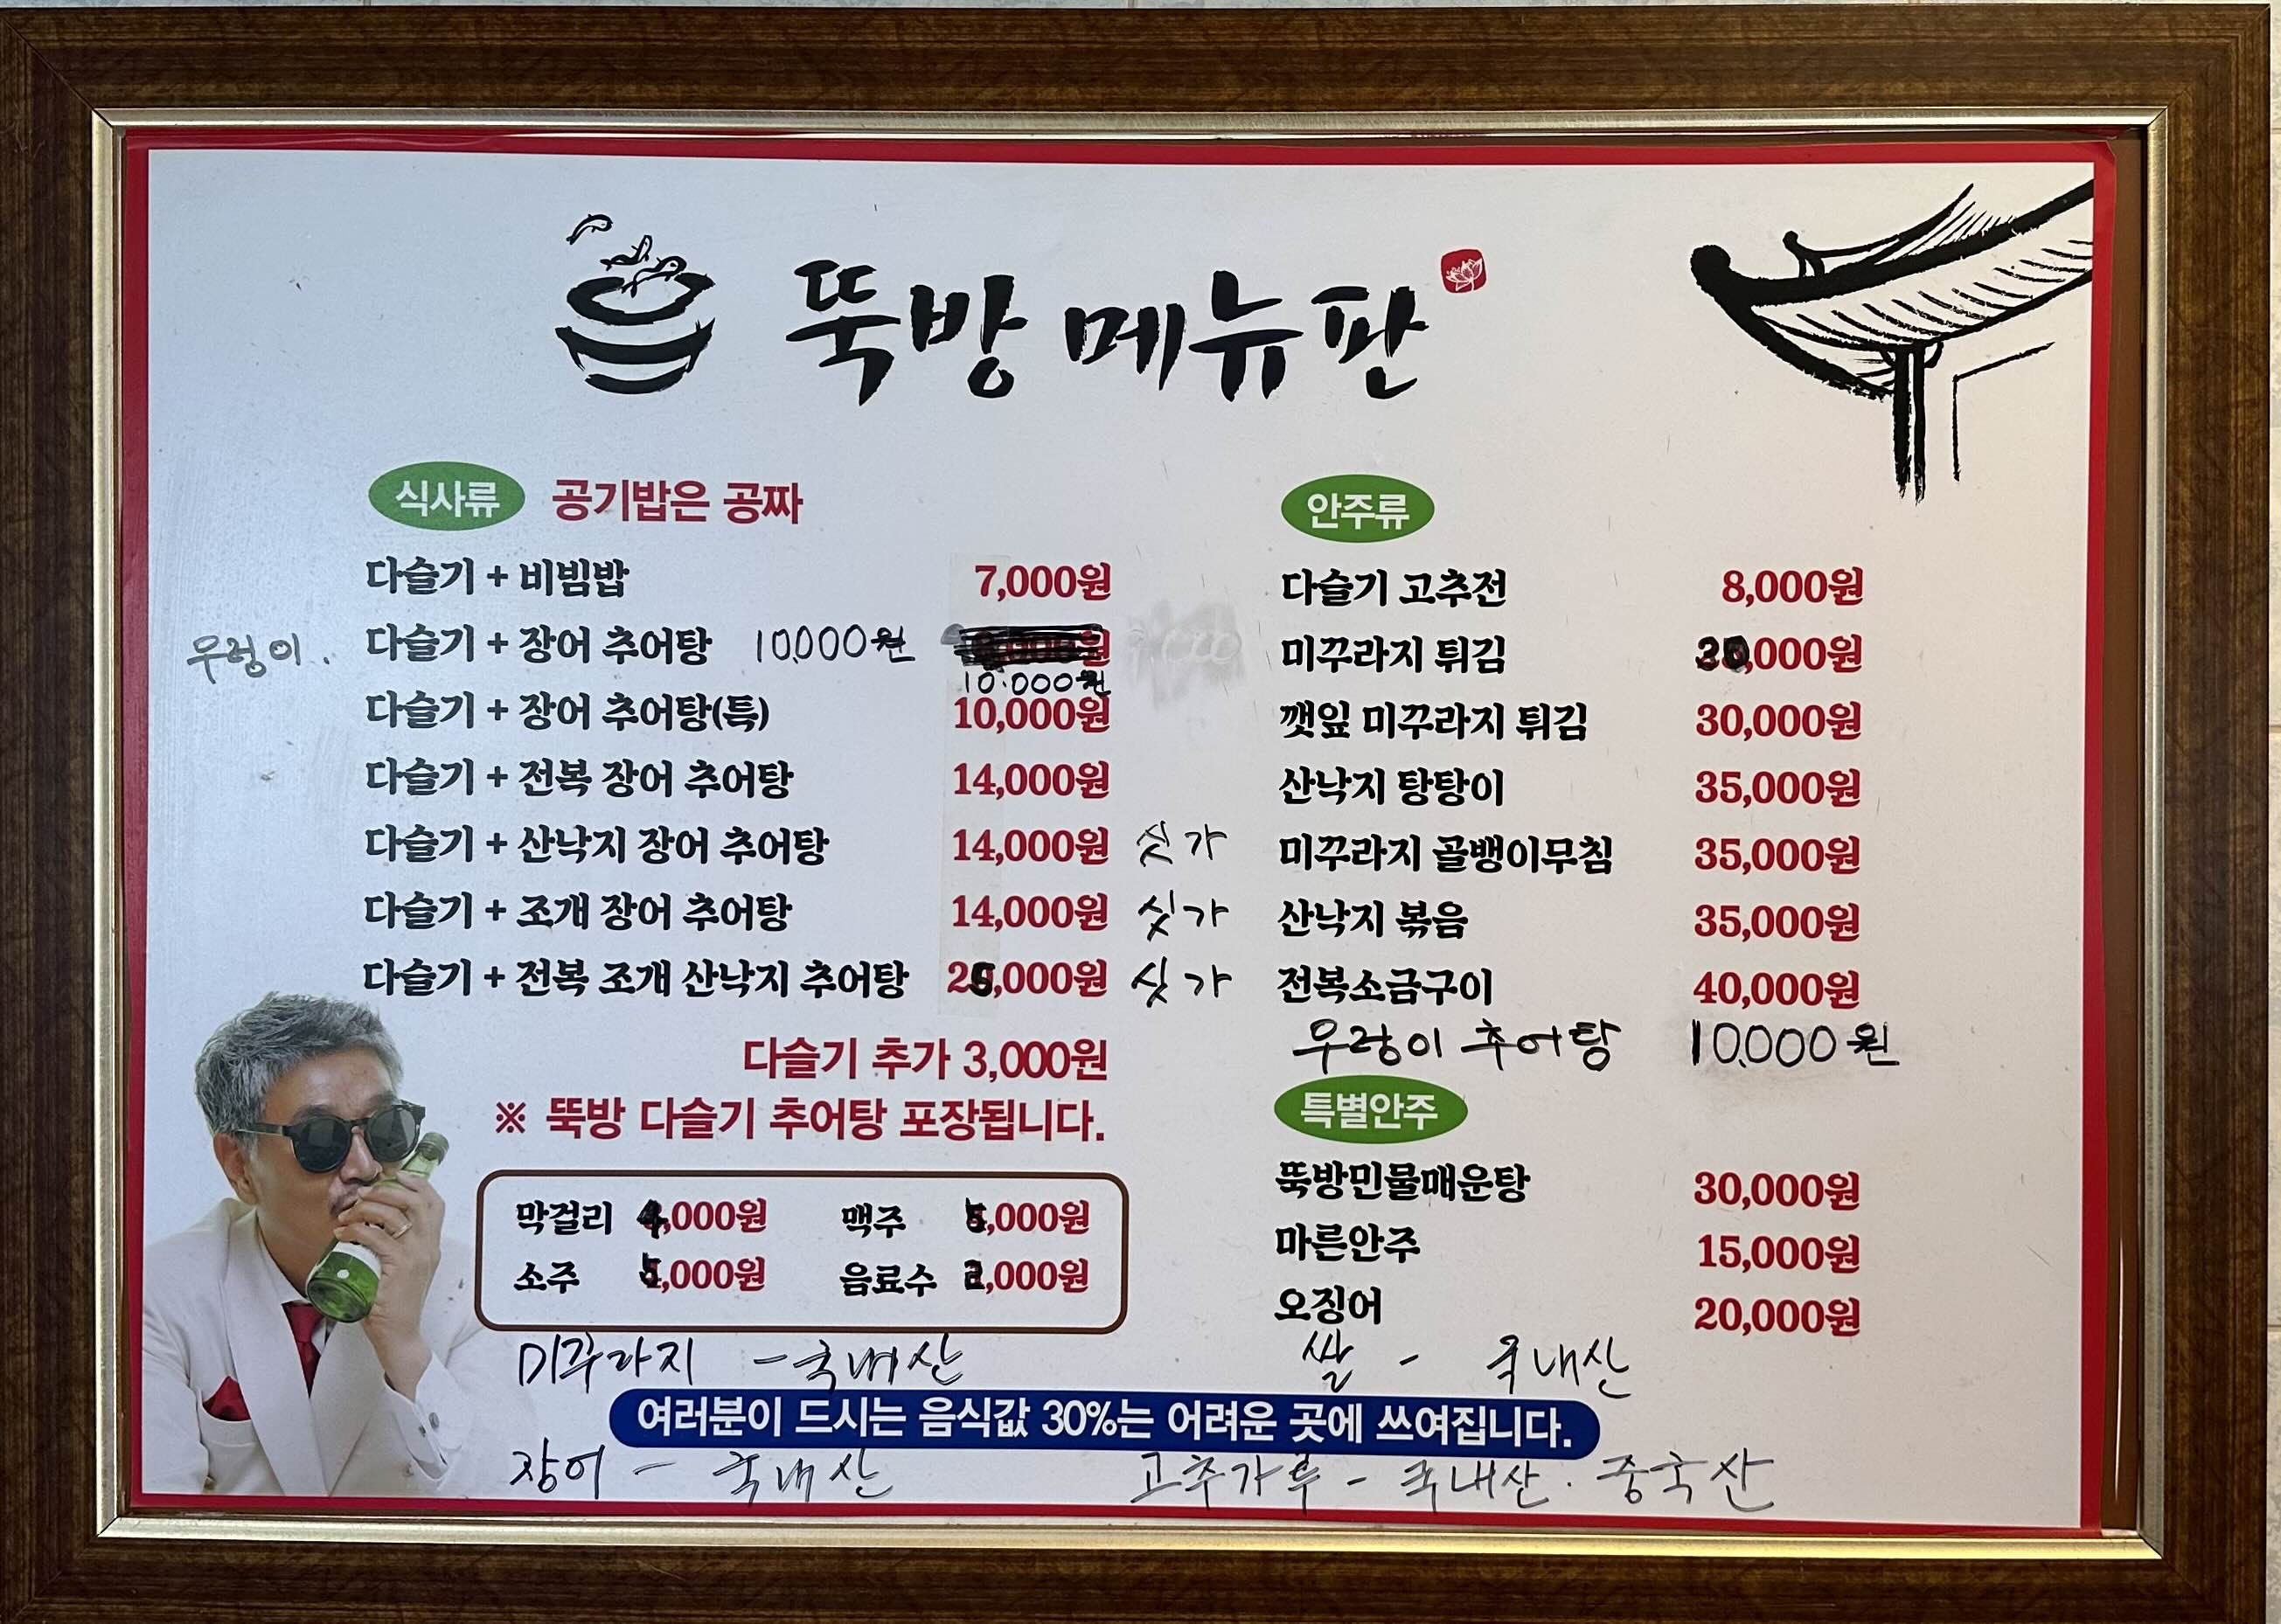 뚝방 메뉴판
식사류 공기밥은 공짜
다슬기 + 비빔밥 7,000원
우렁이. 다슬기 + 장어 추어탕 10,000원
10.000원
다슬기 + 장어 추어탕(특) 10,000원
다슬기 + 전복 장어 추어탕 14,000원
다슬기 + 산낙지 장어 추어탕 14,000원 싯가
다슬기 + 조개 장어 추어탕 14,000원 싯가
다슬기 + 전복 조개 산낙지 추어탕 25,000원 싯가
다슬기 추가 3,000원
※ 뚝방 다슬기 추어탕 포장됩니다.
막걸리 4,000원 맥주 5,000원
소주 5,000원 음료수 2,000원
안주류
다슬기 고추전 8,000원
미꾸라지 튀김 30,000원
깻잎 미꾸라지 튀김 30,000원
산낙지 탕탕이 35,000원
미꾸라지 골뱅이무침 35,000원
산낙지 볶음 35,000원
전복소금구이 40,000원
우렁이 추어탕 10,000원
특별안주
뚝방민물매운탕 30,000원
마른안주 15,000원
오징어 20,000원
미꾸라지 - 국내산 쌀 - 국내산
여러분이 드시는 음식값 30%는 어려운 곳에 쓰여집니다.
장어 - 국내산 고추가루 - 국내산. 중국산